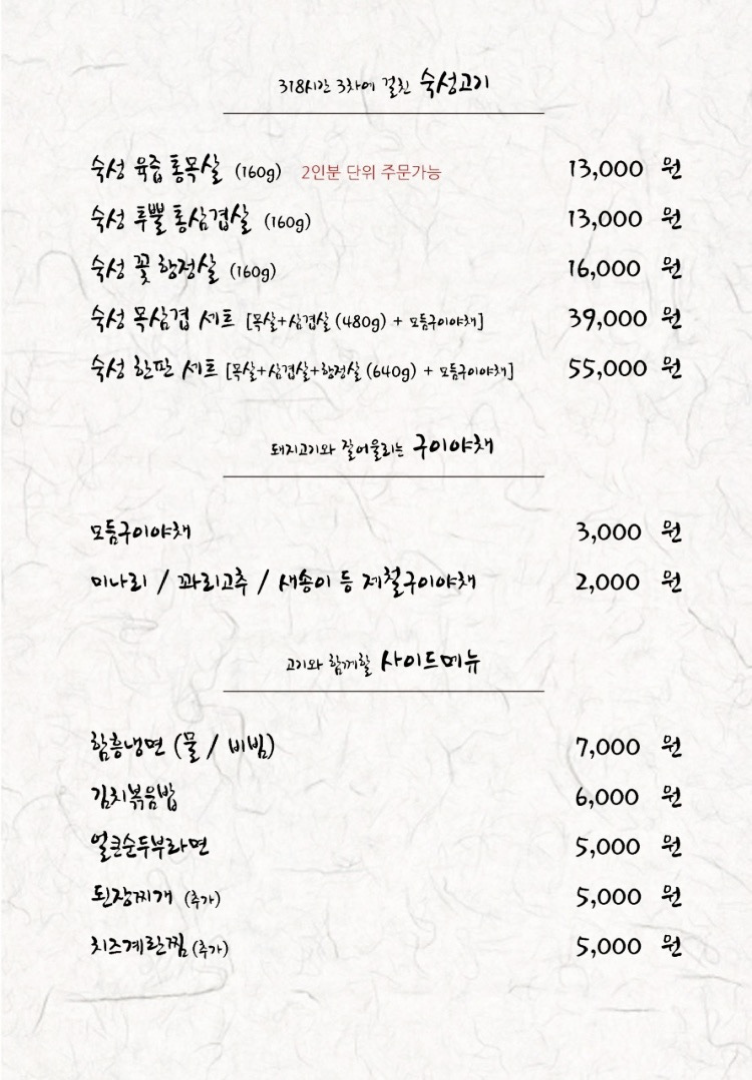 318시간 3차에 걸친 숙성고기
숙성 육즙 통목살 (160g) 2인분 단위 주문가능 13,000 원
숙성 투뿔 통삼겹살 (160g) 13,000 원
숙성 꽃 항정살 (160g) 16,000 원
숙성 목삼겹 세트 [목살+삼겹살 (480g) + 모듬구이야채] 39,000 원
숙성 한판 세트 [목살+삼겹살+항정살 (640g) + 모듬구이야채] 55,000 원
돼지고기와 잘어울리는 구이야채
모듬구이야채 3,000 원
미나리 / 꽈리고추 / 새송이 등 제철구이야채 2,000 원
고기와 함께할 사이드메뉴
함흥냉면 (물 / 비빔) 7,000 원
김치볶음밥 6,000 원
얼큰순두부라면 5,000 원
된장찌개 (추가) 5,000 원
치즈계란찜 (추가) 5,000 원